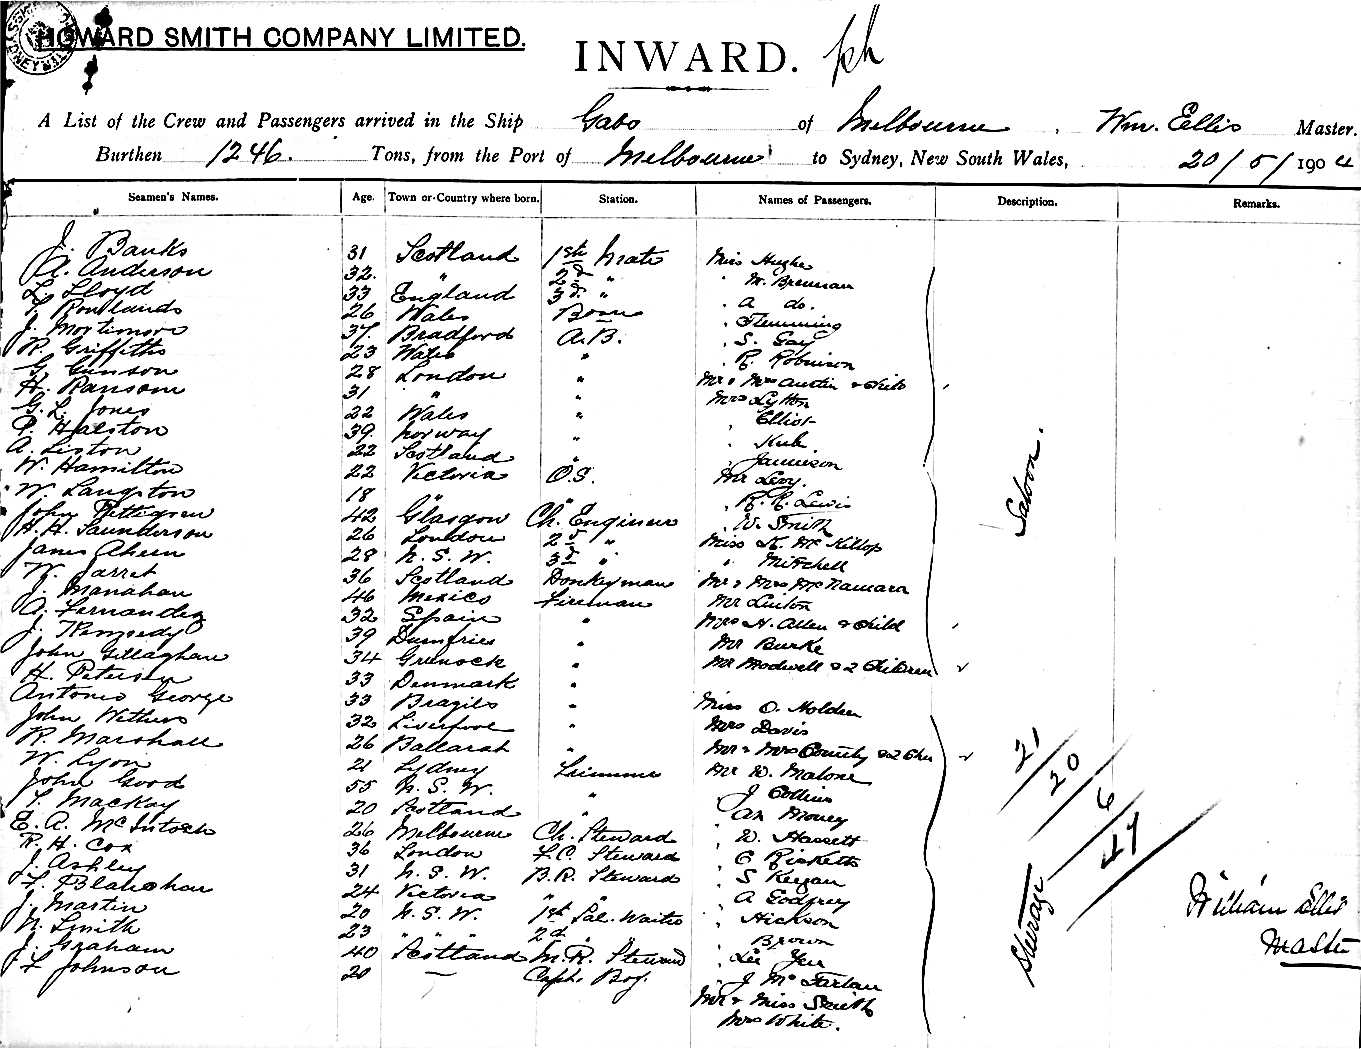 HOWARD SMITH COMPANY LIMITED.
INWARD.
A List of the Crew and Passengers arrived in the Ship Gabo of Melbourne, Wm. Ellis Master.
Burthen 1246. Tons, from the Port of Melbourne to Sydney, New South Wales, 20/5/1904
Seamen's Names. Age. Town or Country where born. Station. Names of Passengers. Description. Remarks.
J. Banks 31 Scotland 1st Mate Miss Hughes
A. Anderson 32. " 2d " " M. Brennan
L. Lloyd 33 England 3d " " A do.
Rowlands 26 Wales Bosun " Flemming
J. Mortimore 37. Bradford A.B. " S. Gay
R. Griffiths 23 Wales " " R. Robinson
G. Gunson 28 London " Mr & Mrs Austin & child
H. Ransom 31 " " Mrs Lytton
G. L. Jones 22 Wales " " Elliot
P. Halston 39. Norway "
A. Liston 22 Scotland " " Jamieson
W. Hamilton 22 Victoria O.S. Mr Levy.
W. Langston 18 " " " R. R. Lewis
John Pettigrew 42 Glasgow Ch. Engineer " W. Smith
H. H. Saunderson 26 London 2d " Miss K. McKillop
James Ahern 28 N. S. W. 3d " " Mitchell
W. Jarret 36 Scotland Donkeyman Mr & Mrs McNamara
J. Manahan 46 Mexico Fireman Mr Linton
A. Fernandez 32 Spain " Mrs H. Allen & child
J. Kennedy 39 Dumfries " Mr Burke
John Gillaghan 34 Greenock " Mr Modwell & 2 Children
H. Petersen 33 Denmark "
Antonio George 33 Brazils " Miss O. Holden
John Withers 32 Liverpool " Mrs Davis
R. Marshall 26 Ballarat " Mr & Mrs & 2 Chn
W. Lyon 21 Sydney Trimmer Mr W. Malone
John Good 55 N. S. W. " J Collins
T. Mackay 20 Scotland " Money
E. A. McIntosh 26 Melbourne Ch. Steward " W. Hassett
R. H. Cox 36 London F.C. Steward " C Ricketts
J. Ashley 31 N. S. W. B.R. Steward " S Keegan
F. Blanchan 24 Victoria " " " A Godfrey
J. Martin 20 N. S. W. 1st Sal. Waiter " Hickson
N. Smith 23 " " " 2d " " Brown
J. Graham 40 Scotland M. R. Steward " Lee Yee
F Johnson 20 — Capt. Boy. " J McFarlan
Mr & Miss Smith
Mrs White.
Saloon.
21
20
6
47
Steerage
William Ellis
Master